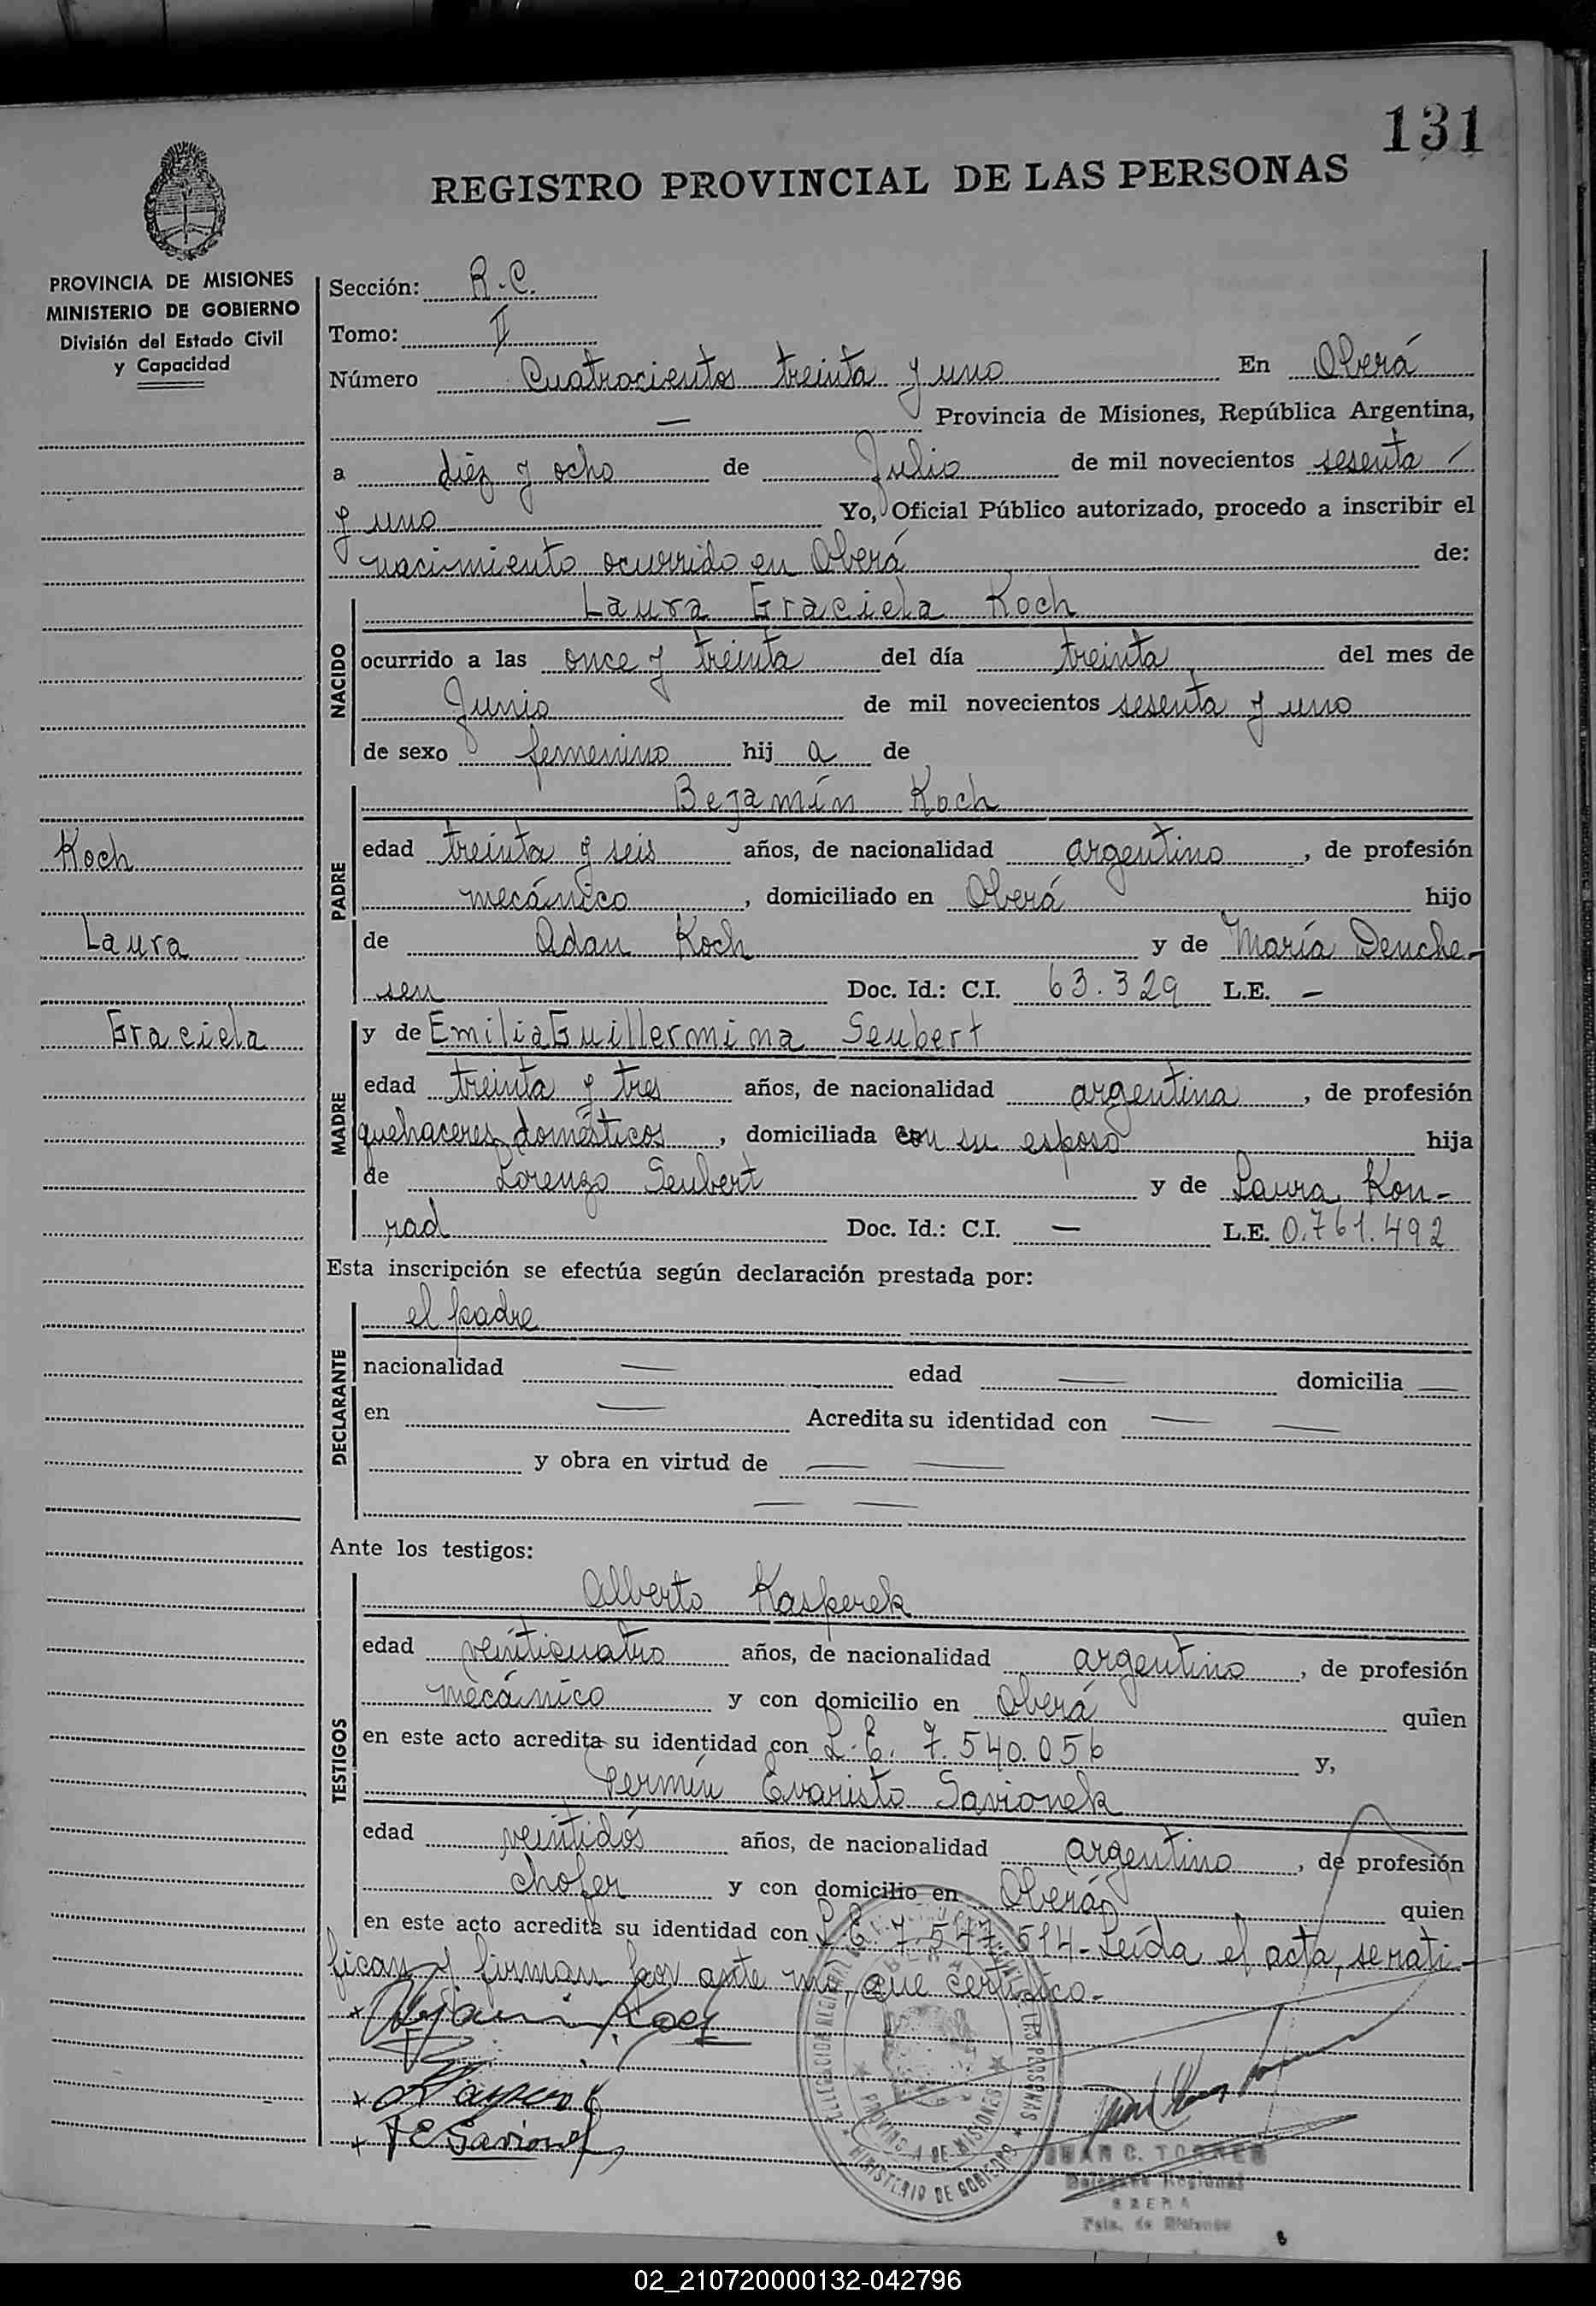 131
REGISTRO PROVINCIAL DE LAS PERSONAS
PROVINCIA DE MISIONES
MINISTERIO DE GOBIERNO
División del Estado Civil
y Capacidad
Koch
Laura
Graciela
Sección: R.C.
Tomo: II
Número Cuatrocientos treinta y uno En Oberá
— Provincia de Misiones, República Argentina,
a diéz y ocho de Julio de mil novecientos sesenta
y uno Yo, Oficial Público autorizado, procedo a inscribir el
nacimiento ocurrido en Oberá de:
NACIDO
Laura Graciela Koch
ocurrido a las once y treinta del día treinta del mes de
Junio de mil novecientos sesenta y uno
de sexo femenino hij a de
PADRE
Bejamín Koch
edad treinta y seis años, de nacionalidad argentino, de profesión
mecánico, domiciliado en Oberá hijo
de Adan Koch y de María Denche-
sen Doc. Id.: C.I. 63.329 L.E. —
MADRE
y de Emilia Guillermina Seubert
edad treinta y tres años, de nacionalidad argentina, de profesión
quehaceres domésticos, domiciliada con su esposo hija
de Lorenzo Seubert y de Laura Kon-
rad Doc. Id.: C.I. — L.E. 0.761.492
Esta inscripción se efectúa según declaración prestada por:
DECLARANTE
el padre
nacionalidad — edad — domicilia —
en — Acredita su identidad con — —
y obra en virtud de — —
— —
Ante los testigos:
TESTIGOS
Alberto Kasperek
edad veinticuatro años, de nacionalidad argentino, de profesión
mecánico y con domicilio en Oberá quien
en este acto acredita su identidad con L.E. 7.540.056 y,
Fermín Evaristo Savionek
edad veintidós años, de nacionalidad argentino, de profesión
chofer y con domicilio en Oberá quien
en este acto acredita su identidad con L.E. 7.547.514- Leída el acta, se rati-
fican y firman por ante mí, que certifico.-
x Bejamin Koch
x Kasperek
x F E Savionek
PROVINCIA DE MISIONES
MINISTERIO DE GOBIERNO
JUAN C. TORRES
Delegado Regional
OBERA
Pcia. de Misiones
02_210720000132-042796